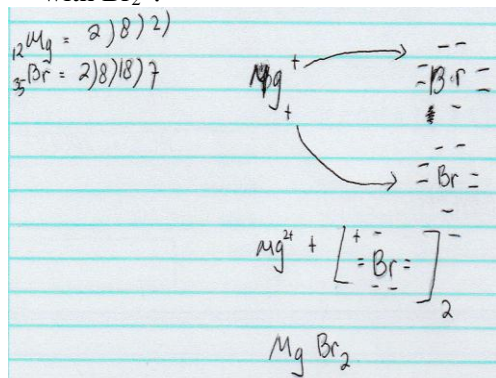 with Br₂ ?
₁₂Mg = 2)8)2)
₃₅Br = 2)8)18)7
Mg
Br
Br
Mg²⁺ + [Br]⁻₂
Mg Br₂